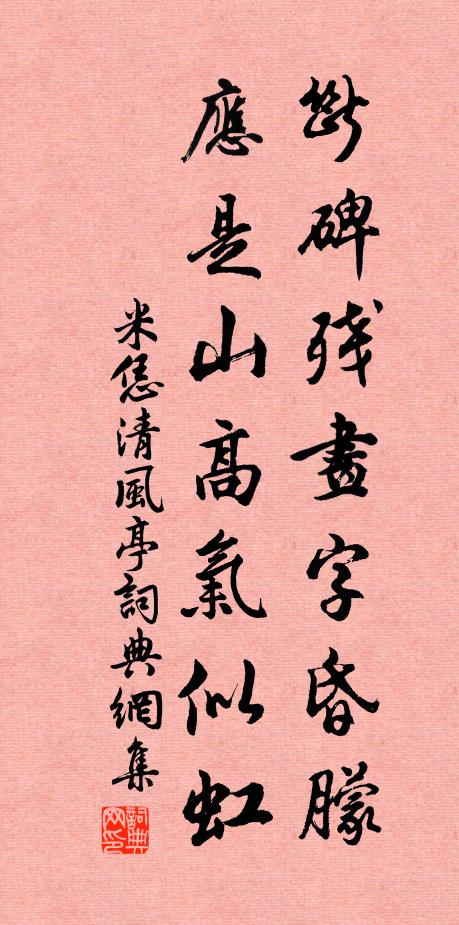 斷碑殘畫字昏朦
應是山高氣似虹
米恁清風亭詞典網集
詞典网印